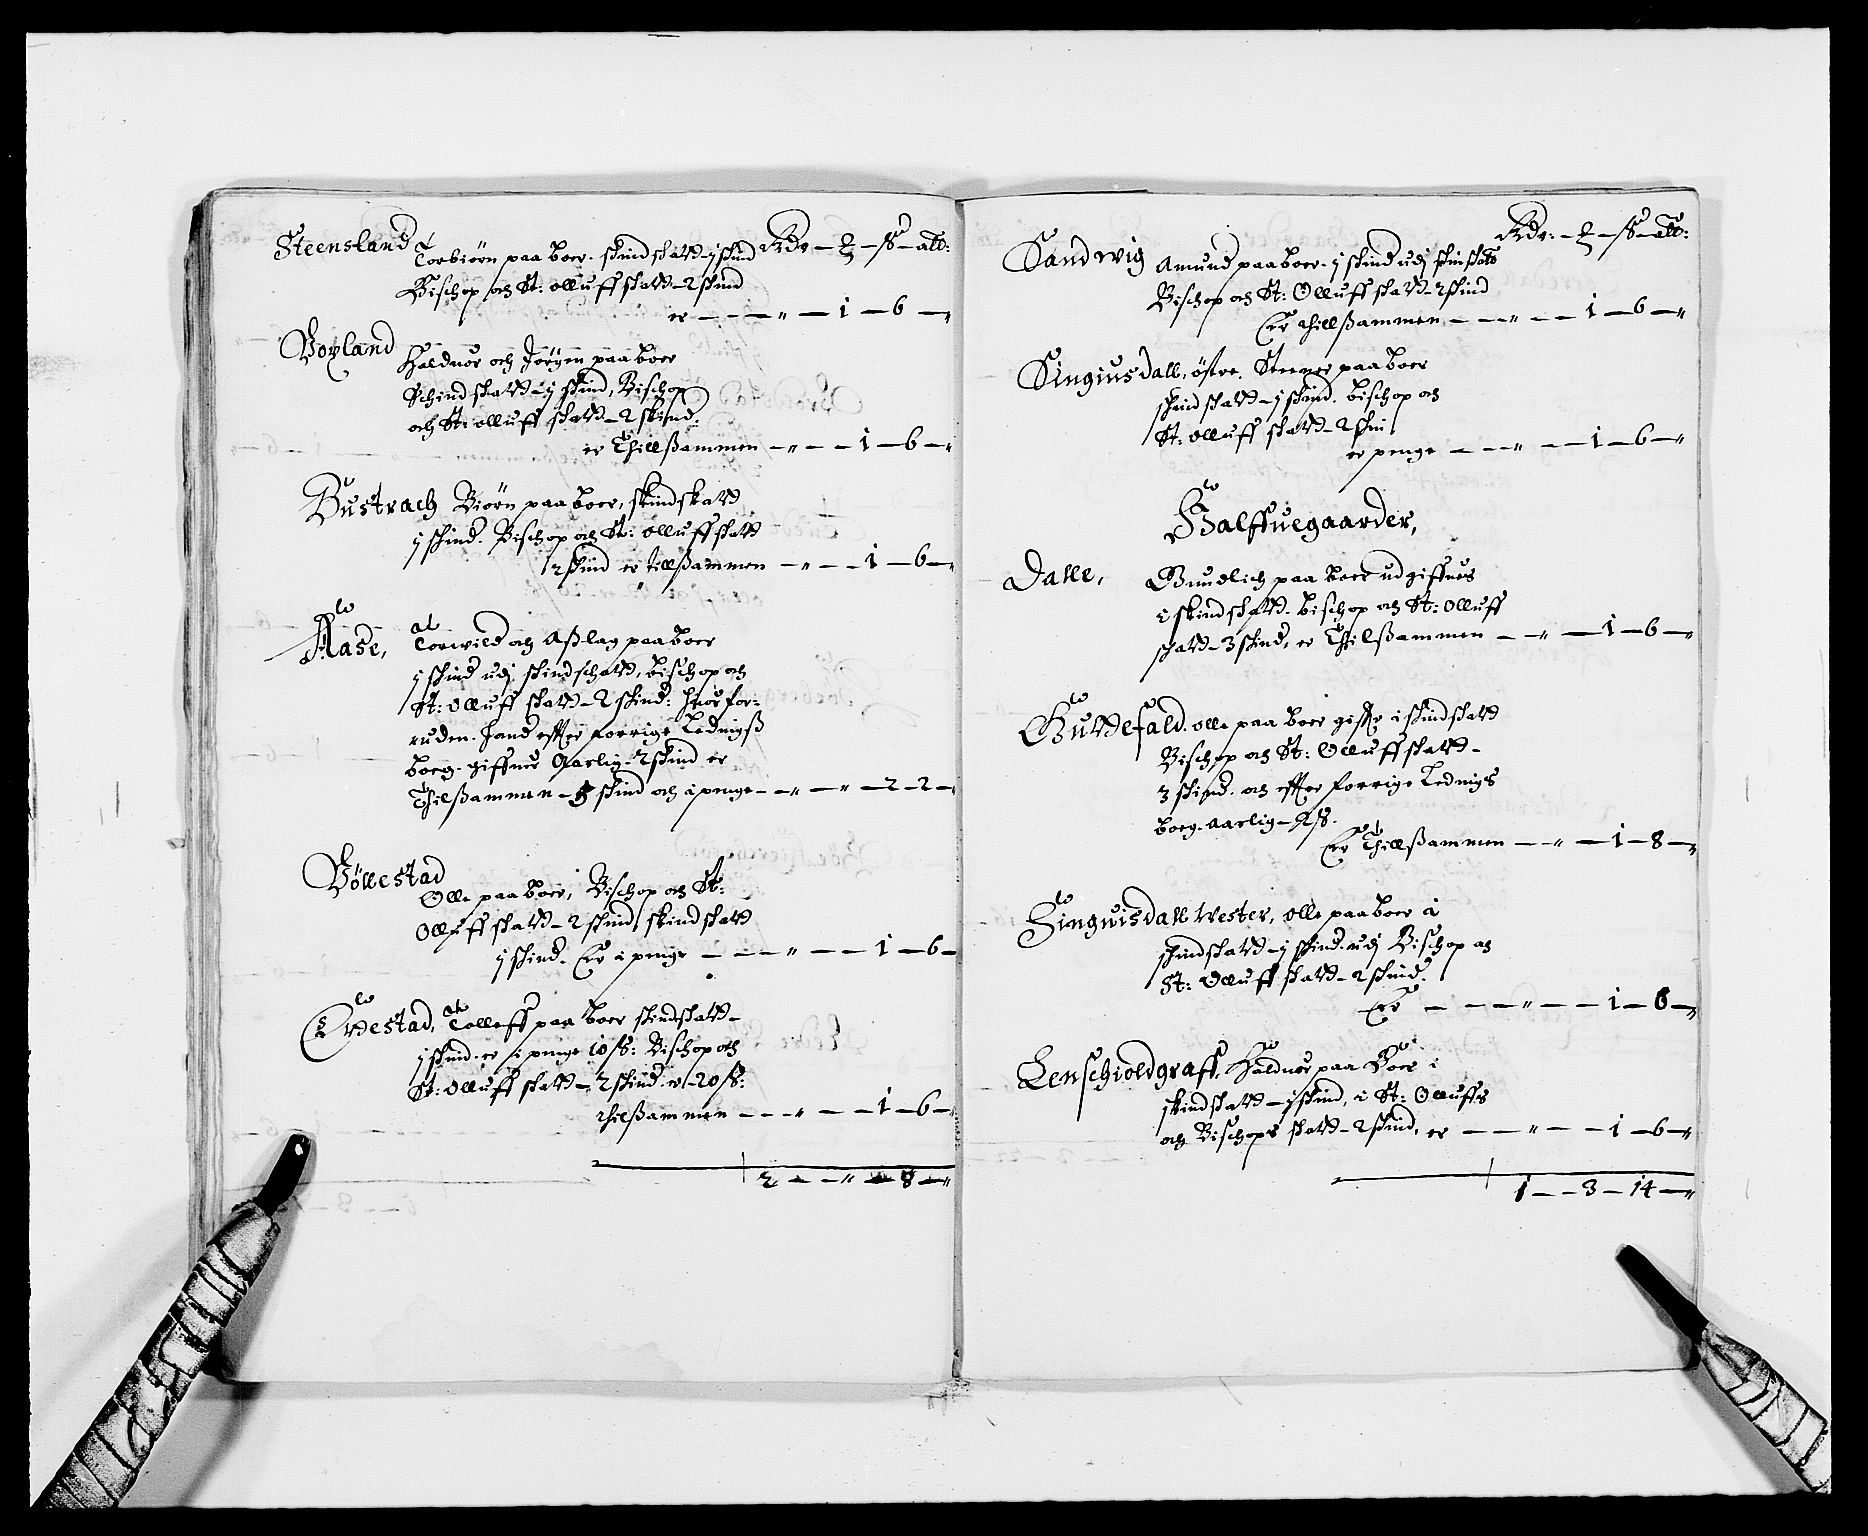 Rdr — ₰ — ß — alb:
Steensland Torbiörn paa boer. skind skatt – j skind
Bischop och St: olluff skatt – 2 skind
er — — — " — 1 — 6 — "
Voyland Haldvor och Jörgen paa boer
Schind skatt – j skind, Bischop
och St: olluff skatt – 2 skind.
er Thillßammen — " — — 1 — 6 — "
Bustrach Biörn paa boer, skindskatt
j skind. Bischop och St: olluff skatt
2 skind er tillßammen — " — — 1 — 6 — "
Aase, Torvild och Aßlag paa boer
j skind udj skindschatt, bischop och
St: olluff skatt – 2 skind: huor for-
uden. hand effter forrige Lednigß
boeg. giffuer Aarlig – 2 skind er
Thilßammen – 5 skind och i penge — " — " — 2 – 2 — "
Völlestad
Olle paa boer, Bischop och St:
Olluff skatt – 2 skind, skind skatt
j skind. Er i penge — — — " — — 1 — 6 —
Tvedestad, Tolleff paa boer skindskatt –
j skind. er i penge 10 ß: Bischop och
St: olluff skatt – 2 skind er – 20 ß:
thilßammen — — — " — — 1 — 6 — "
2 — — " — 8 — "
Rdr: — ₰ — ß — alb:
Sandwig Amund paa boer. j skind udj skinskatt
Bischop och St: Olluff skatt – 2 skind
Er thillßammen — — " — — 1 — 6 — "
Singiusdall, östre. Steener paa boer
skind skatt – j skind. bischop och
St: olluff skatt – 2 skin
er penge — — — " — — 1 — 6 — "
Halffuegaarder,
Dalle, Gundlich paa boer udgiffues
i skind skatt. bischop och St: olluff
skatt – 3 skind, er Thilßammen — — " — 1 — 6 — "
Guttefald. olle paa boer giffr i skindskatt
Bischop och St: Olluff skatt –
3 skind. och effter forrige Lednigs
boeg. aarlig – 2 ß.
Er Thillßammen — — " — — 1 — 8 — "
Singuisdall Wester, olle paa boer i
skindskatt – j skind. udj Bischop och
St: Olluff skatt – 2 skind.
Er — — — " — — 1 — 6 — "
Lenschioldgraff, Haldvor paa Boer i
skind skatt – j skind, i St: Olluffs
och Bischops skatt – 2 skind, er — — " — — 1 — 6 — "
1 — — 3 — 14 — "